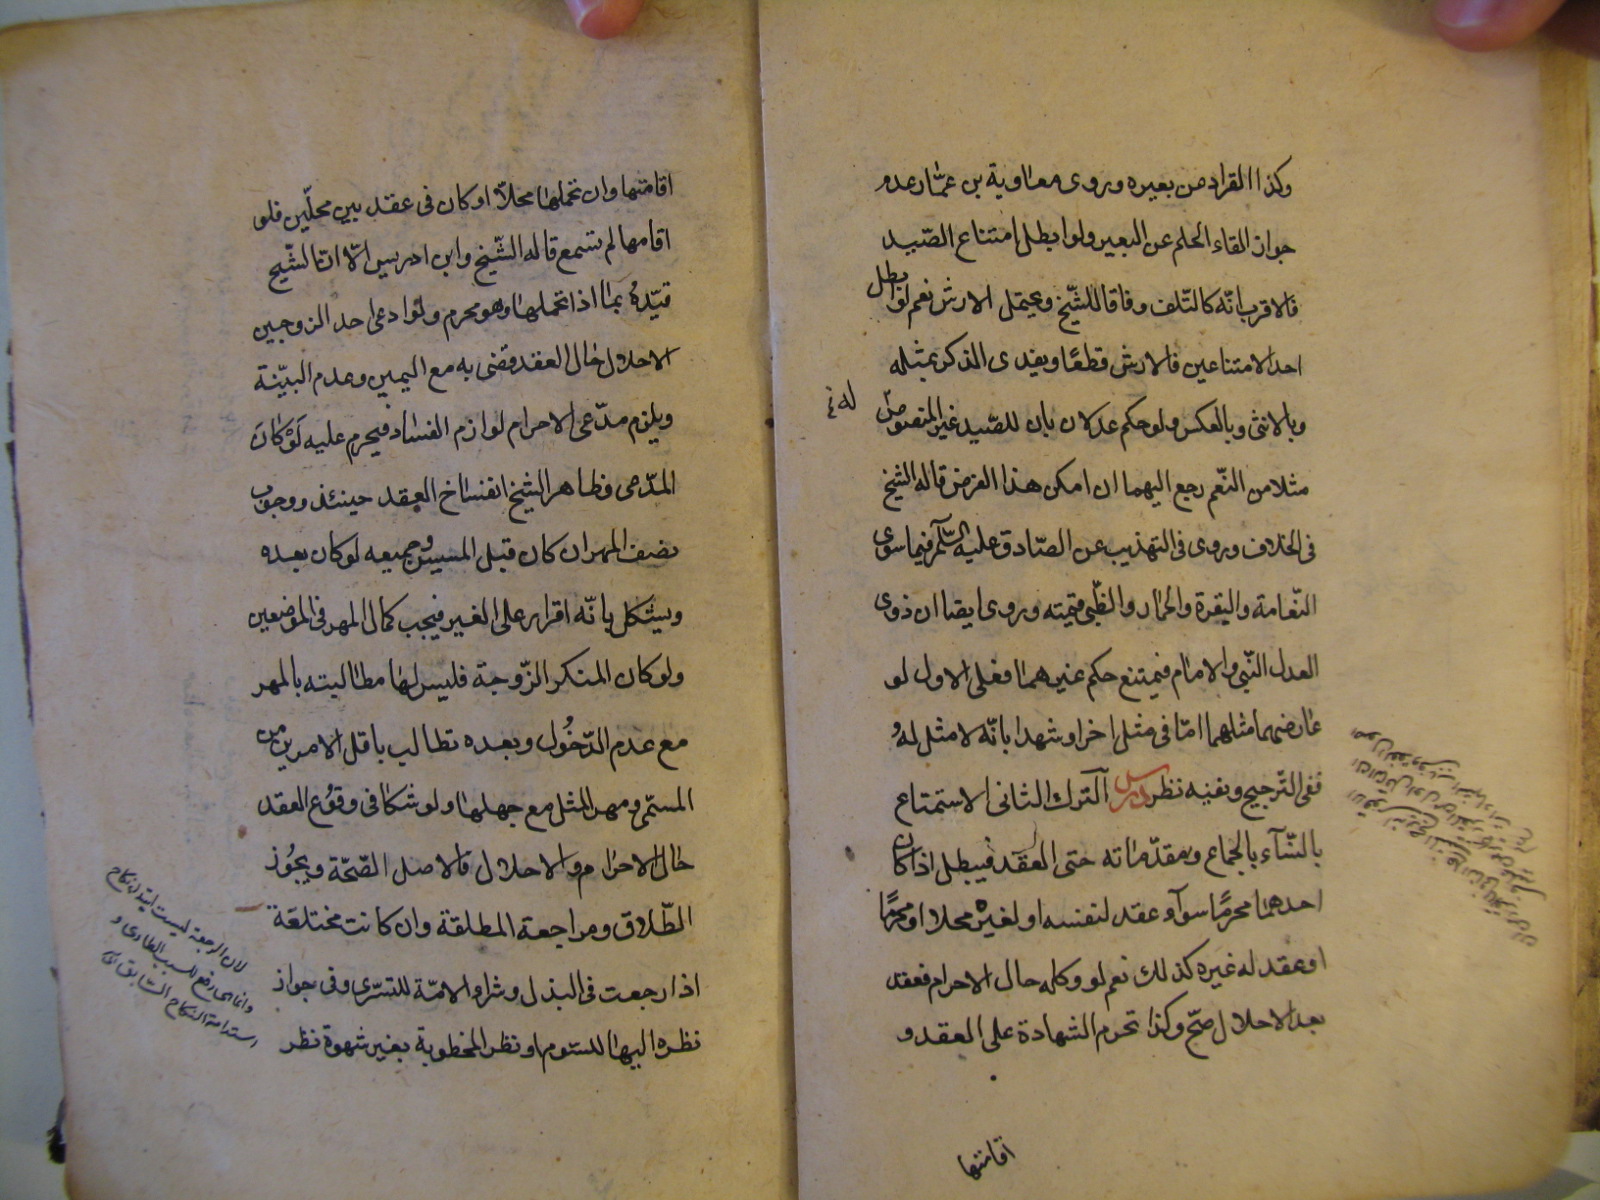 وكذا القراد من بعيره وروى معاوية بن عمار عدم
جواز القاء الحلم عن البعير ولو ابطل امتناع الصّيد
فالاقرب انّه كالتّلف وفاقا للشّيخ ويحتمل الارش نعم لو ابطل
احد الامتناعين فالارش قطعًا ويفدى الذكر بمثله
وبالانثى وبالعكس ولو حكم عدلان بان للصّيد غير المنصوص
له
مثلا من النّعم رجع اليهما ان امكن هذا الفرض قاله الشيخ
فى الخلاف وروى فى التهذيب عن الصّادق عليه السّلم فيما سوى
النّعامة والبقرة والحمار والظّبى قيمته وروى ايضا ان ذوى
العدل النّبى والامام فيمتنع حكم غيرهما فعلى الاول لو
عارضهما مثلهما امّا فى مثل اخر او شهدا بانّه لا مثل له
ففى التّرجيح ونفيه نظر درس الترك الثانى الاستمتاع
بالنّسآء بالجماع ومقدّماته حتى العقد فيبطل اذا كان
احدهما محرمًا سوآء عقد لنفسه او لغيره محلا او محرمًا
او عقد له غيره كذلك نعم لو وكله حال الاحرام فعقد
بعد الاحلال صحّ وكذا تحرم الشهادة على العقد و
اقامتها
اقامتها وان تحملها محلاّ او كان فى عقد بين محلّين فلو
اقامها لم تسمع قاله الشّيخ وابن ادريس الّا انّ الشّيخ
قيّده بما اذا تحملها وهو محرم ولو ادعى احد الزوجين
الاحلال حال العقد قضى به مع اليمين وعدم البيّنة
ويلزم مدّعى الاحرام لوازم الفساد فيحرم عليه لو كان
المدّعى وظاهر الشيخ انفساخ العقد حينئذ ووجوب
نصف المهر ان كان قبل المسيس وجميعه لو كان بعده
ويشكل بانّه اقرار على الغير فيجب كمال المهر فى الموضعين
ولو كان المنكر الزّوجة فليس لها مطالبته بالمهر
مع عدم الدّخول وبعده تطالب باقل الامرين من
المسمّى ومهر المثل مع جهلها ولو شكا فى وقوع العقد
حال الاحرام والاحلال فالاصل الصّحّة ويجوز
الطّلاق ومراجعة المطلقة وان كانت مختلعة
اذا رجعت فى البذل وشراء الامّة للتسرّى وفى جواز
نظره اليها للسّوم او نظر المخطوبة بغير شهوة نظر
لان الرجعة ليست ابتداء نكاح
وانما هى رفع للسبب الطارى و
استدامة النكاح السّابق